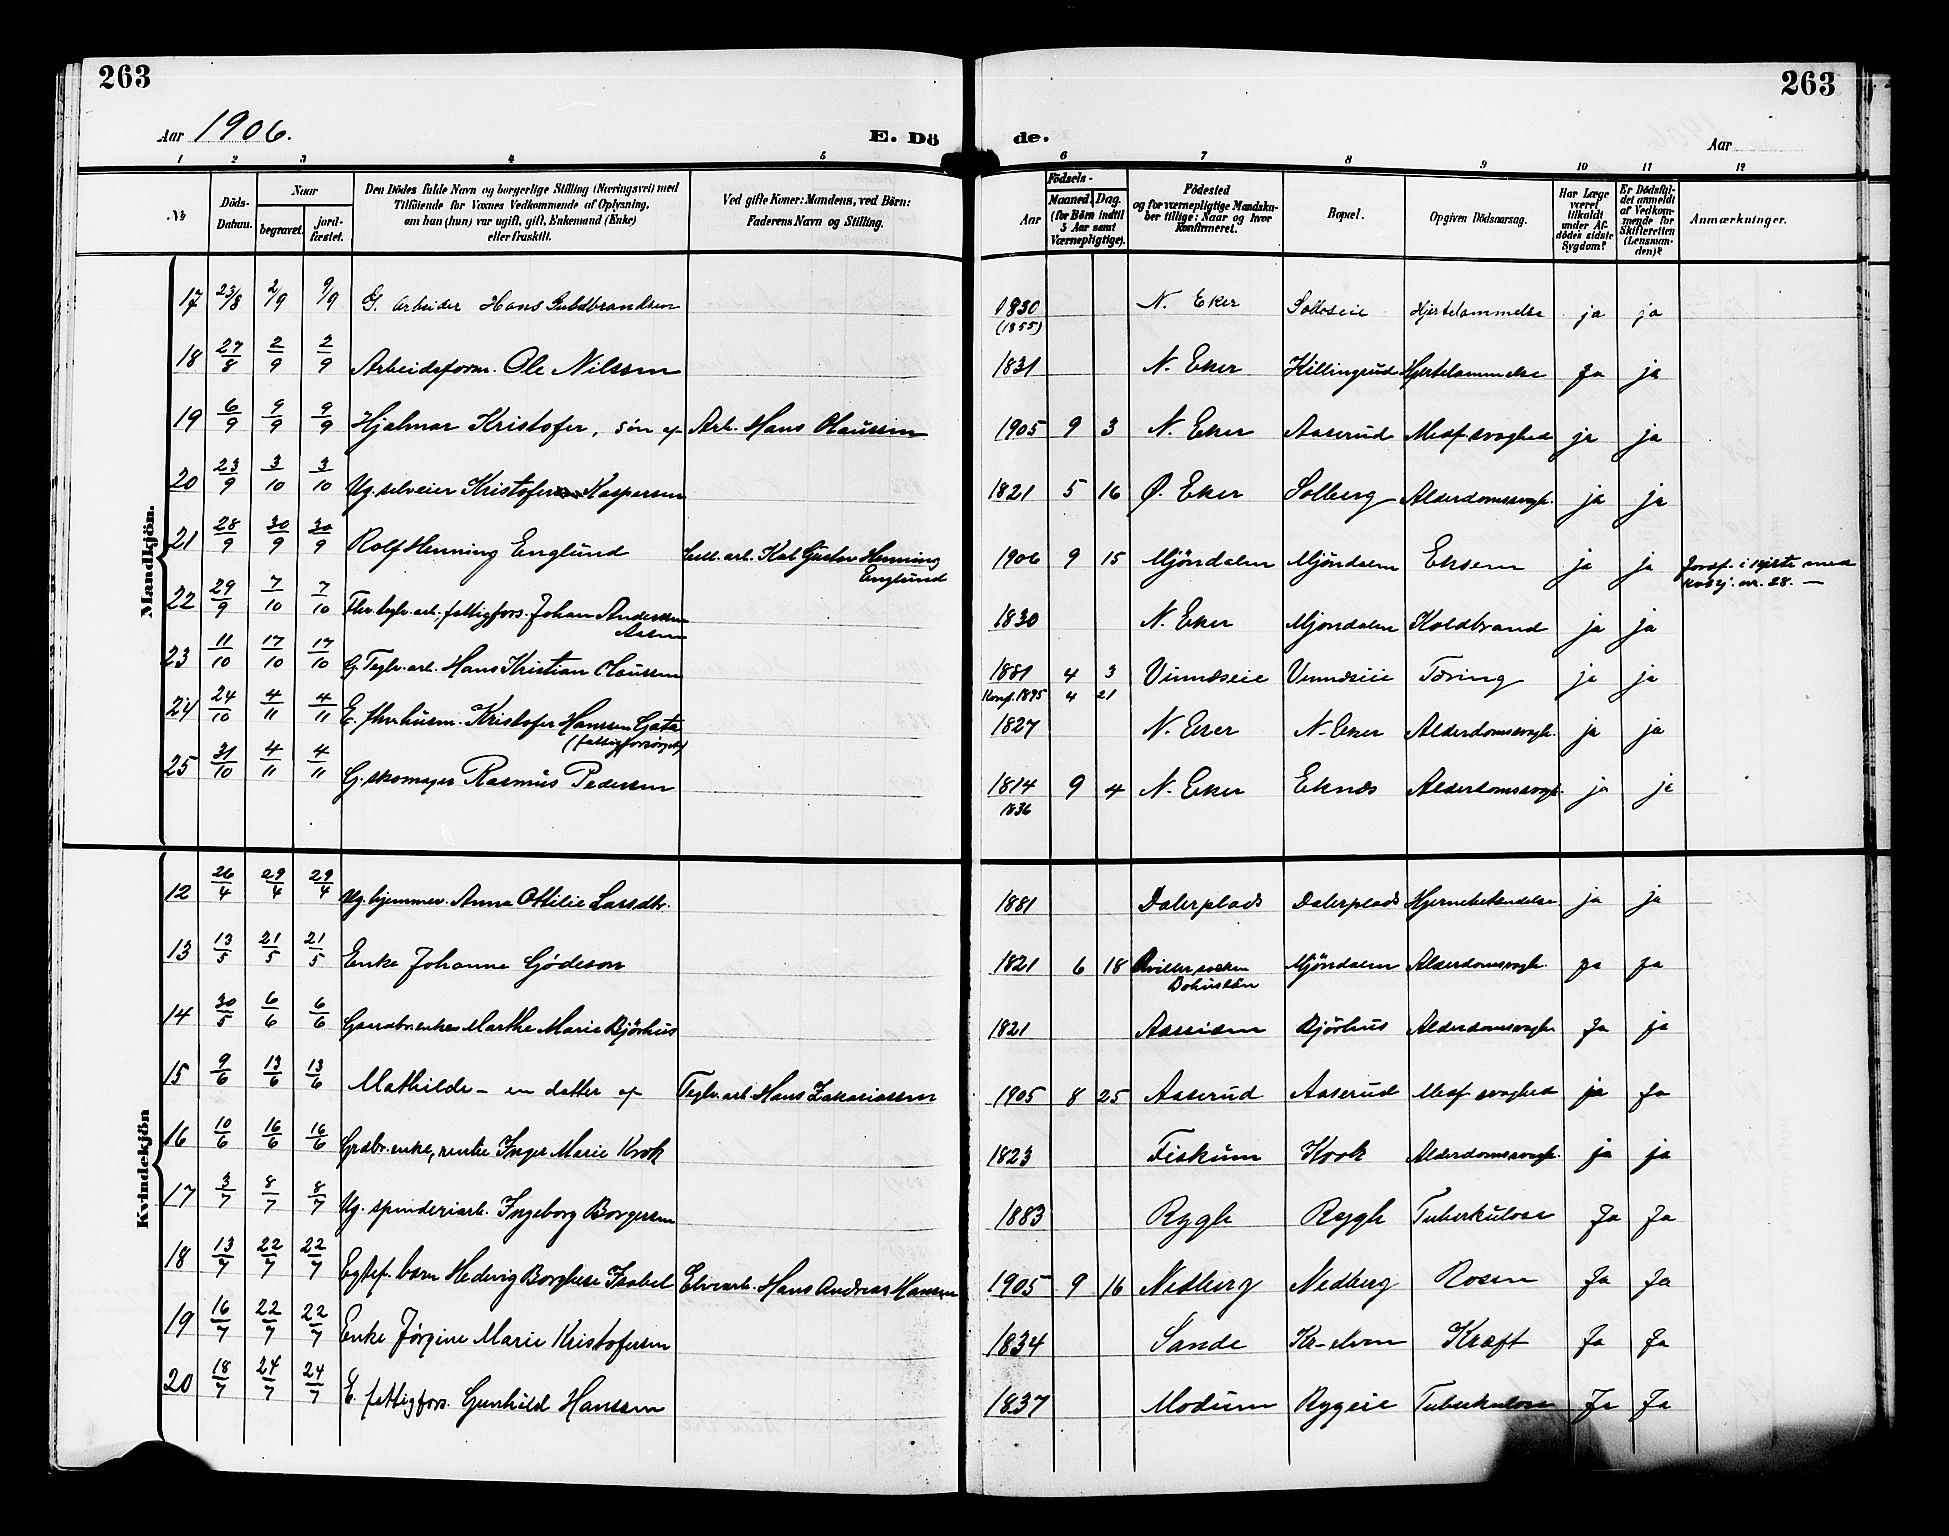 263
263
Aar 1906.
E. Dö
de.
Aar
1 2 3 4 5 6 7 8 9 10 11 12
№
Döds-Datum.
Naar
begravet.
jord-fæstet.
Den Dödes fulde Navn og borgerlige Stilling (Næringsvei) med Tilföiende for Voxnes Vedkommende af Oplysning, om han (hun) var ugift, gift, Enkemand (Enke) eller fraskilt.
Ved gifte Koner: Mandens, ved Börn: Faderens Navn og Stilling.
Födsels-
Aar
Maaned. Dag.
(for Börn indtil 5 Aar samt Værnepligtige).
Födested og for værnepligtige Mandskaber tillige: Naar og hvor konfirmeret.
Bopæl.
Opgiven Dödsaarsag.
Har Læge været tilkaldt under Afdödes sidste Sygdom?
Er Dödsfaldet anmeldt af Vedkommende for Skifteretten (Lensmanden)?
Anmærkninger.
Mandkjön.
17 23/8 2/9 9/9 G. arbeider Hans Gulbrandsen 1830 (1855) N. Eker Solbseie Hjertelammelse ja ja
18 27/8 2/9 2/9 Arbeidsform. Ole Nilssen 1831 N. Eker Killingrud Hjertelammelse Ja ja
19 6/9 9/9 9/9 Hjalmar Kristofer, søn af Arb. Hans Claussen 1905 9 3 N. Eker Aaserud Medf svaghed ja ja
20 23/9 3/10 3/10 Ug. selveier Kristofer Kaspersen 1821 5 16 Ø. Eker Solberg Alderdomssvagh. ja ja
21 28/9 30/9 30/9 Rolf Henning Englund Cell. arb. Karl Gustav Henning Englund 1906 9 15 Mjöndalen Mjöndalen Eksem ja ja Jordf. i kiste med kvkj. nr. 28. —
22 29/9 7/10 7/10 Fhv. teglv. arb., fattigfors. Johan Andersen Aasen 1830 N. Eker Mjöndalen Koldbrand ja ja
23 11/10 17/10 17/10 G. Teglv. arb. Hans Kristian Claussen 1881 4 3 Konf. 1895 4 21 Vinnæseie Vinnæseie Tæring ja ja
24 24/10 4/11 4/11 E. fhv. husm. Kristofer Hanssen Gata (fattigforsørget) 1827 N. Eker N. Eker Alderdomssvagh. ja ja
25 31/10 4/11 4/11 G. skomager Rasmus Pedersen 1814 1836 9 4 N. Eker Eknæs Alderdomssvagh. ja ja
Kvindekjön
12 26/4 29/4 29/4 Ug. hjemmev. Anna Ottilie Larsdtr. 1881 Dalerplads Dalerplads Hjernebetændelse ja ja
13 13/5 21/5 21/5 Enke Johanne Gjödeson 1821 6 18 Mjöndalen Alderdomssvagh. ja ja
14 30/5 6/6 6/6 Gaardbr. enke Marthe Marie Bjørhus 1821 Aassiden Bjørhus Alderdomssvagh. Ja ja
15 9/6 13/6 13/6 Mathilde – en datter af Teglv. arb. Hans Zakariassen 1905 8 25 Aaserud Aaserud Medf svaghed ja Ja
16 10/6 16/6 16/6 Grdbr. enke, rentie Inger Marie Krok 1823 Fiskum Krok Alderdomssvagh. ja ja
17 3/7 8/7 8/7 Ug. spinderiarb. Ingeborg Borgersen 1883 Rygh Rygh Tuberkulose Ja Ja
18 13/7 22/7 22/7 Egtef. barn Hedevig Borghese Isabel Elvearb. Hans Andreas Hansen 1905 9 16 Nedberg Nedberg Rosen Ja Ja
19 16/7 22/7 22/7 Enke Jørgine Marie Kristofersen 1834 Sande Kr-elven Kræft Ja Ja
20 18/7 24/7 24/7 E. fattigfors. Gunhild Hanssen 1837 Modum Rygeie Tuberkulose Ja Ja